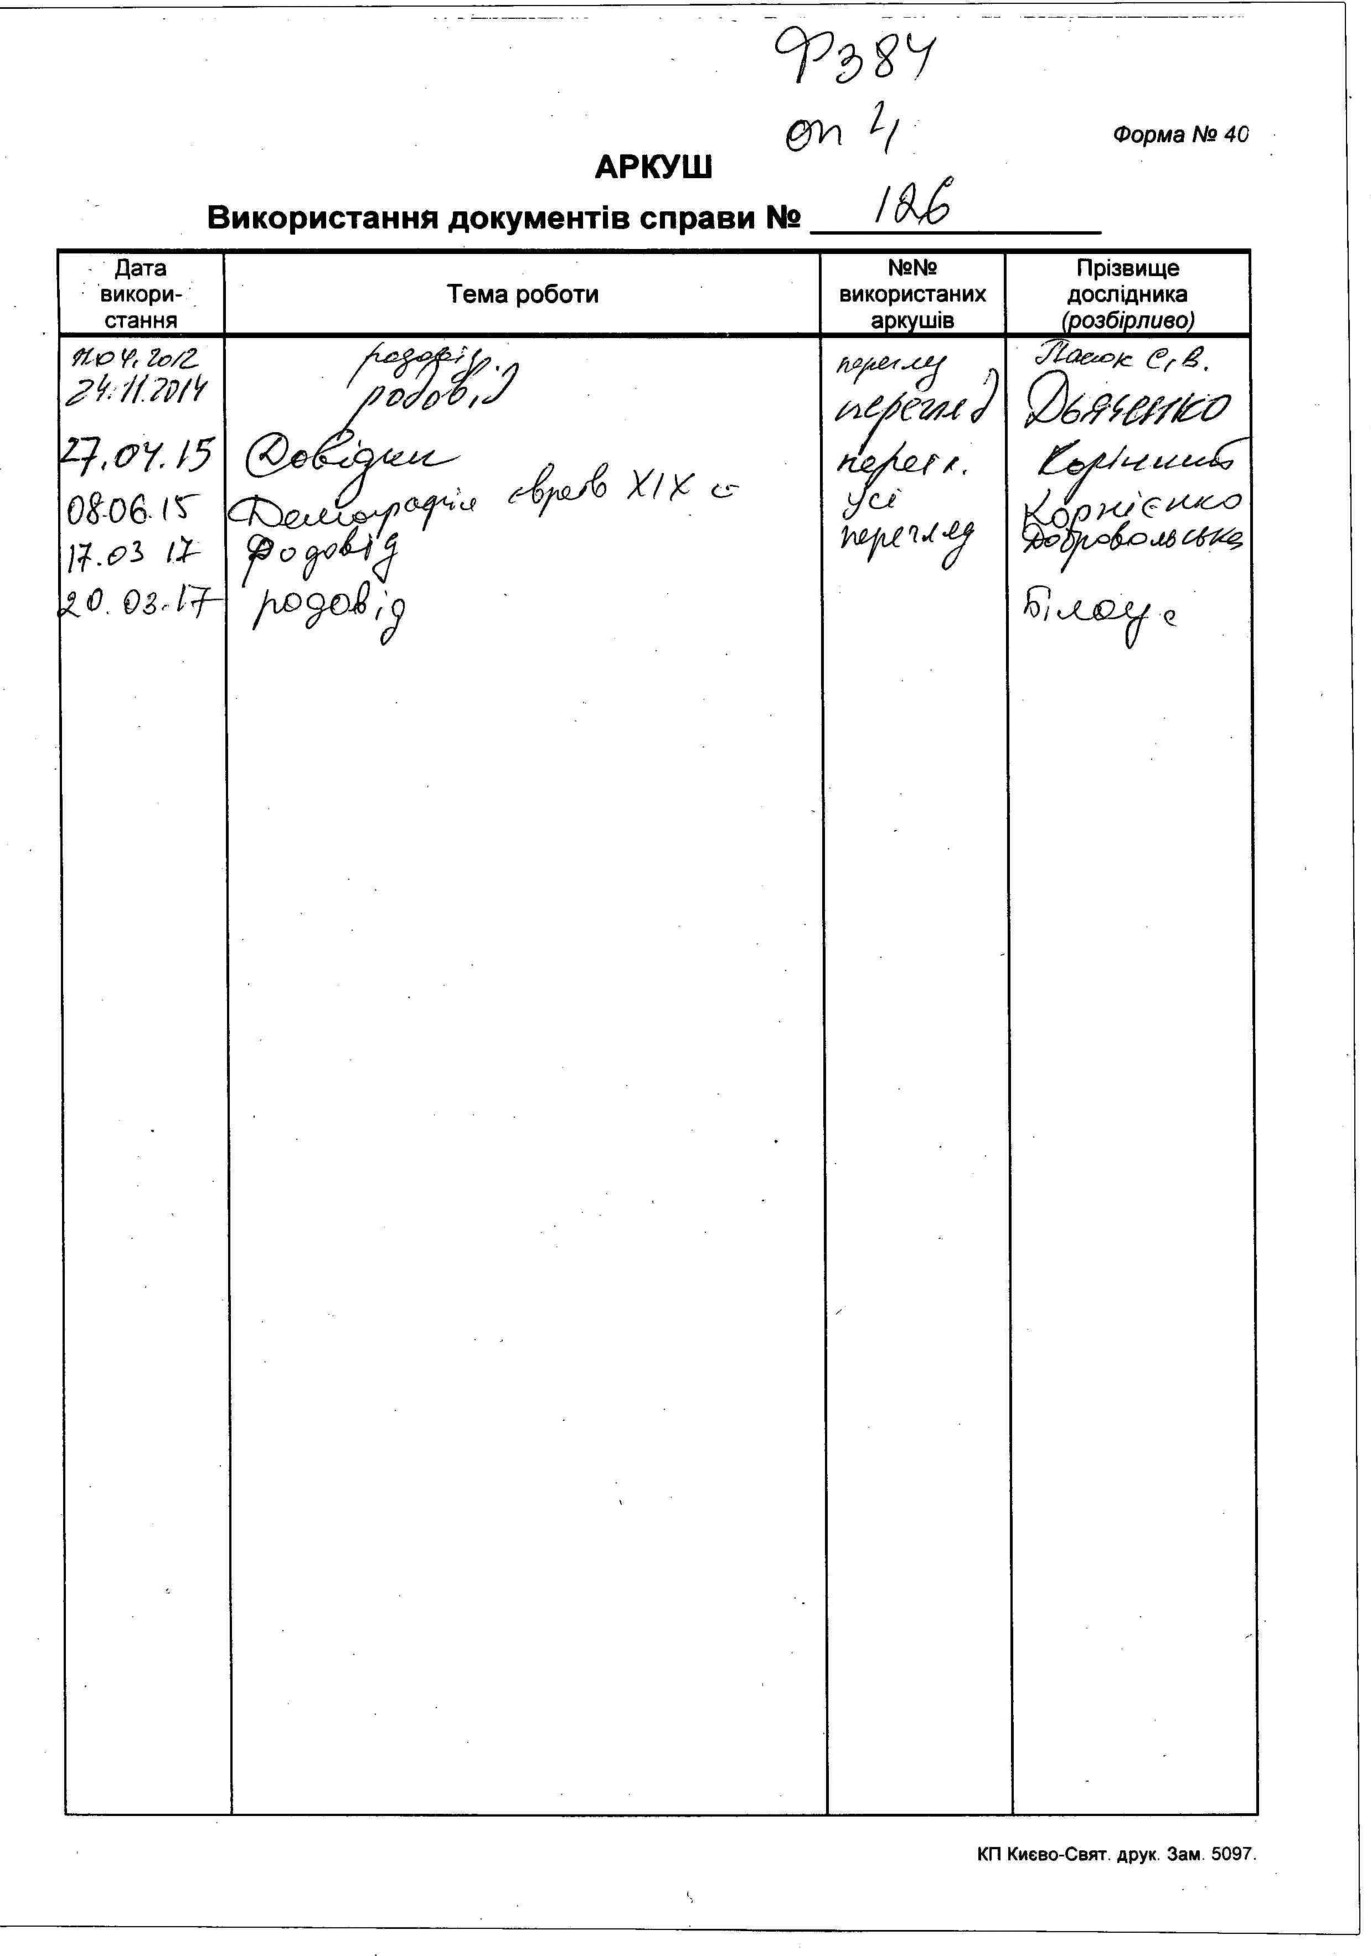 Ф384
оп 4
Форма № 40
АРКУШ
Використання документів справи № 126
Дата використання
Тема роботи
№№ використаних аркушів
Прізвище дослідника (розбірливо)
04.2012 родовід. С.В.
24.11.2014 родовід перегляд Дьяченко
27.04.15 Довідки перегл.
08.06.15 Демографія євреїв XIX ст Усі Корнієнко
17.03 17 Родовід перегляд Добровольська
20.03.17 родовід Білоус
КП Києво-Свят. друк. Зам. 5097.